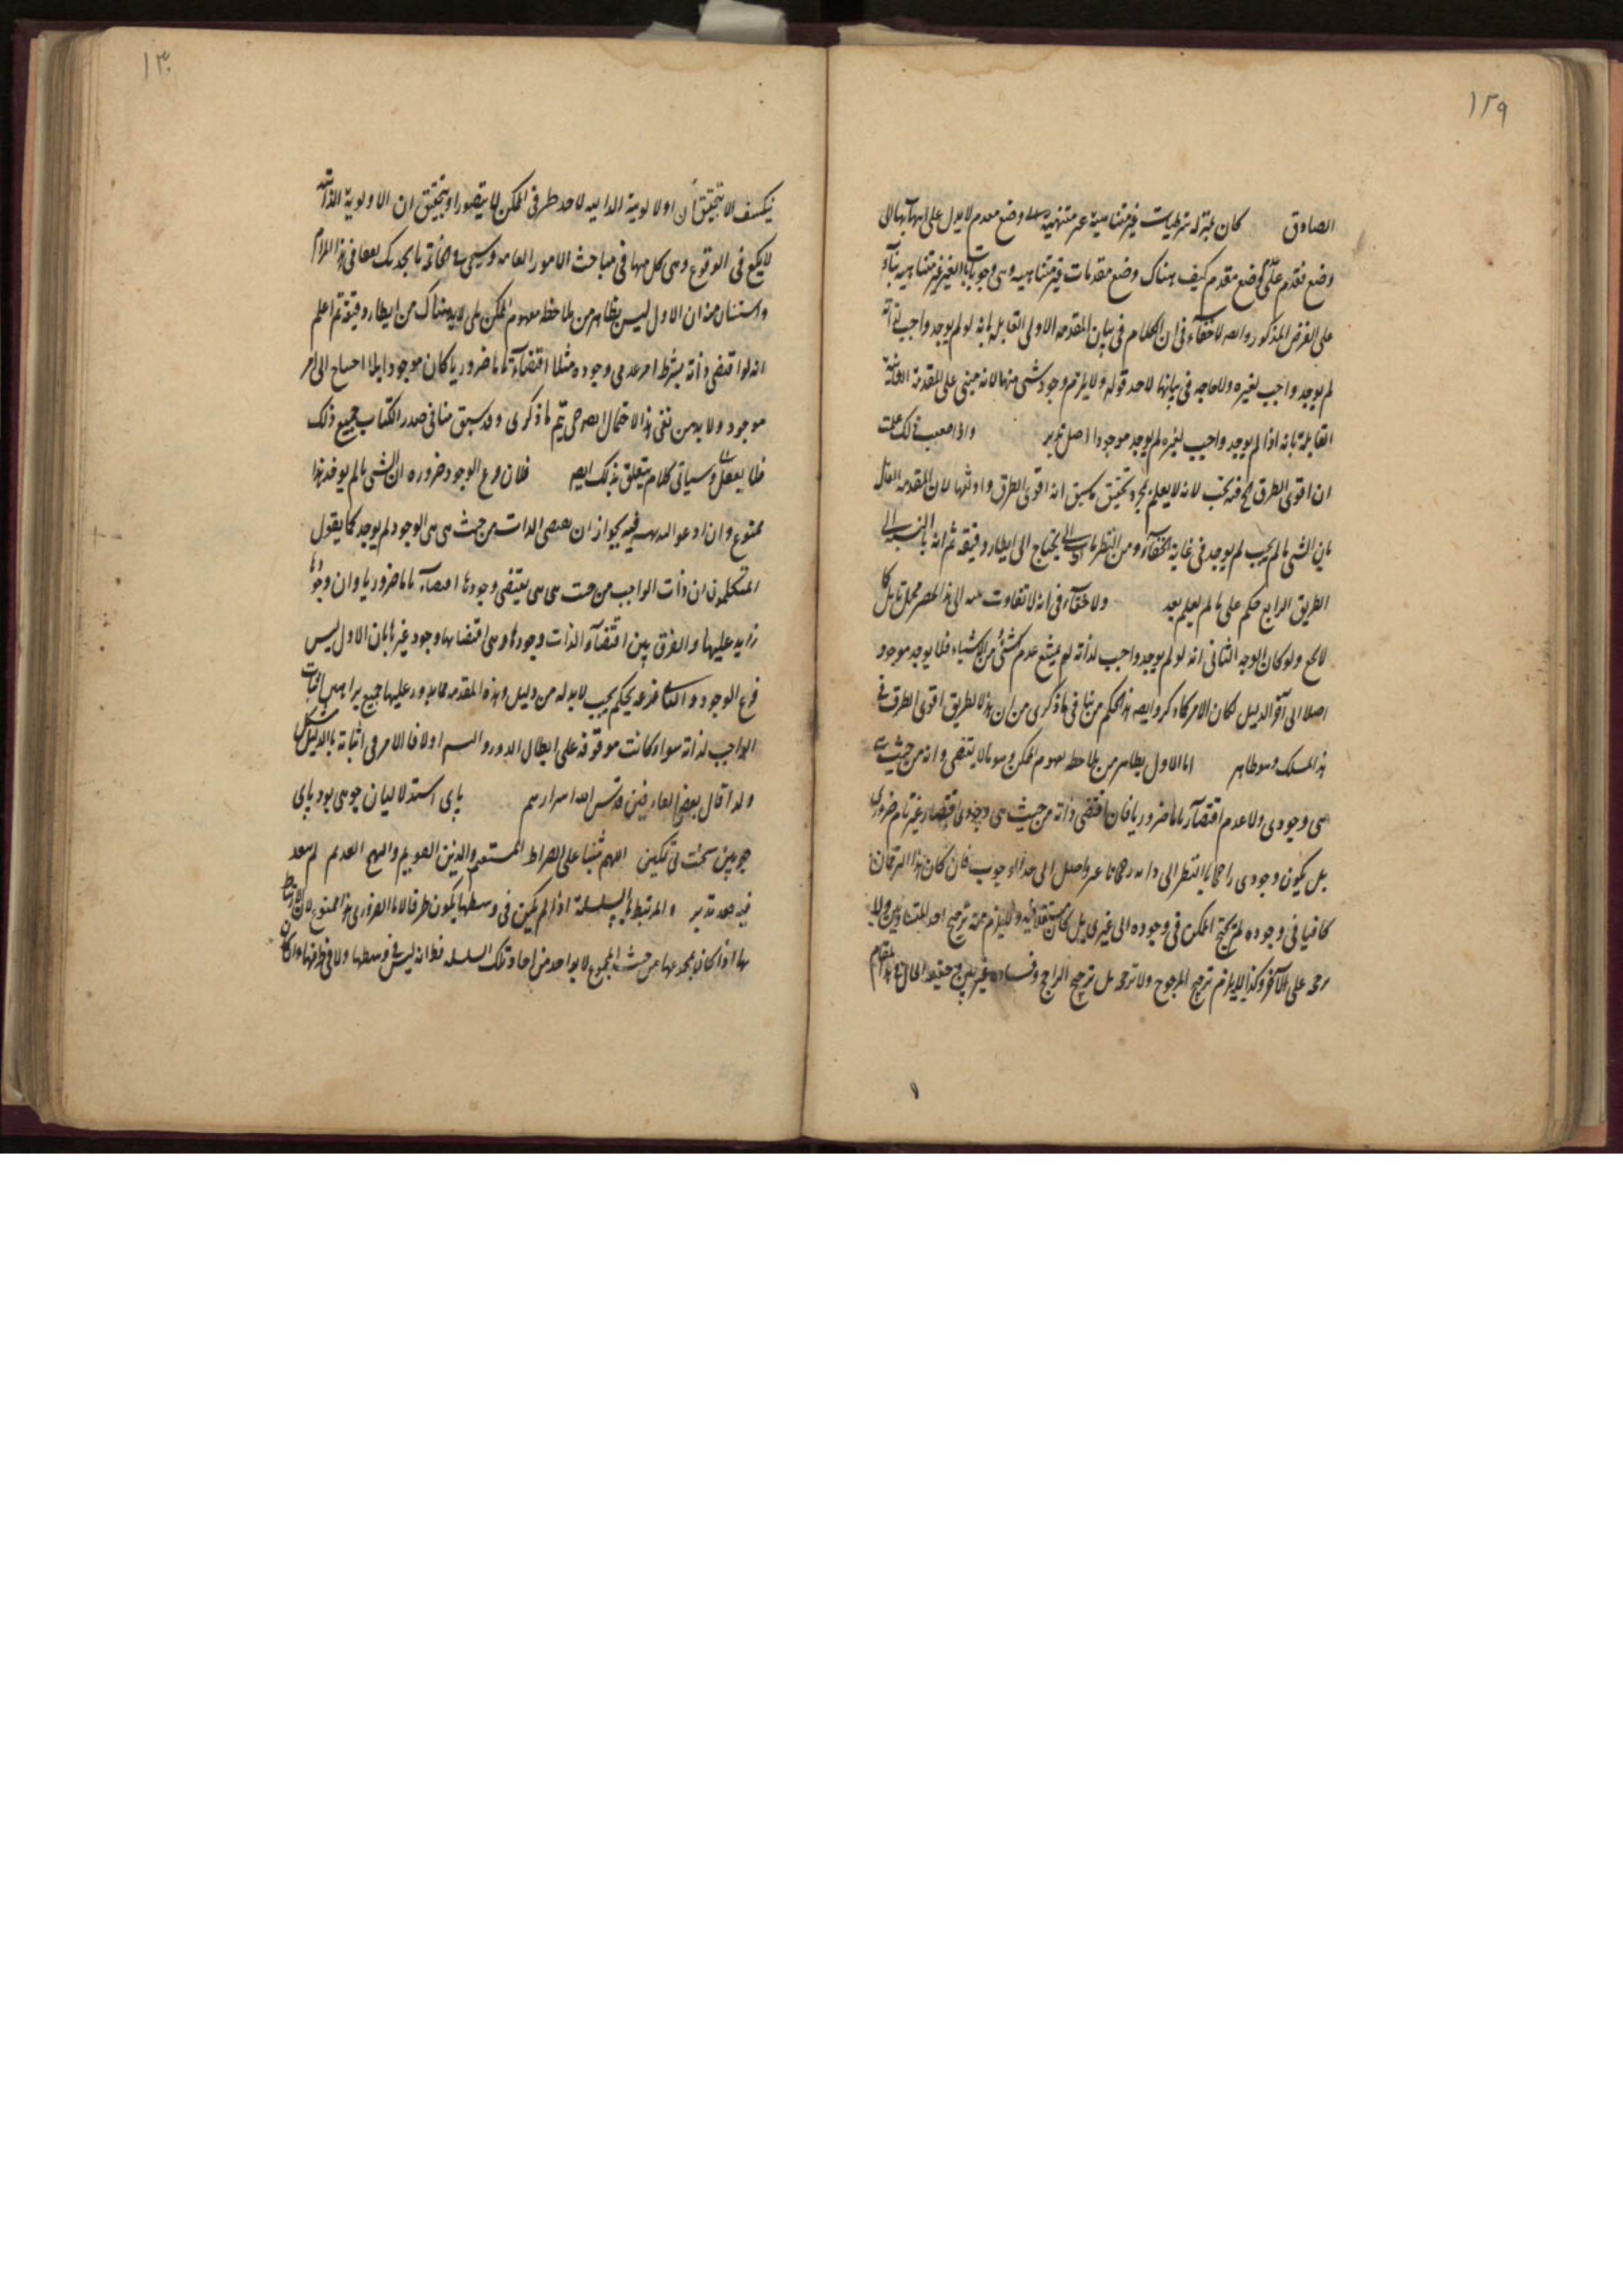 ١٢٩
الصادق كان بمنزلة شرطيات غير متناهية غير منتهية الى وضع مقدم لا يدل على انتهائها الى
وضع مقدم كيف هناك وضع مقدمات غير متناهية وهى وجوبات بالغير غير متناهية بناء
على الفرض المذكور وايضا لا خفاء فى ان الكلام فى بيان المقدمة الاولى القائلة بانه لو لم يوجد واجب لذاته
لم يوجد واجب لغيره ولا حاجة فى بيانها لاخذ قوله ولا يلزم وجود شىء منها لانه مبنى على المقدمة الثانية
القائلة بانه اذا لم يوجد واجب لغيره لم يوجد موجود اصلا تدبر واذا ذلك علمت
ان اقوى الطرق لانه لا يعلم بمجرد تحقيق ما سبق انه اقوى الطرق واوثقها لان المقدمة القائلة
بان الشى ما لم يجب لم يوجد فى غاية الخفاء ومن النظريات التى يحتاج الى انظار دقيقة ثم انه بالنسبة الى
الطريق الرابع حكم على ما لم يعلم بعد ولا خفاء فى انه لا تفاوت الى هذا الحصر محل تامل كما
لا يخفى ولو كان الوجه الثانى انه لو لم يوجد واجب لذاته لم يمتنع عدم شىء من الاشياء فلا يوجد موجود
اصلا الى آخر الدليل لكان الامر كما ذكر وايضا هذا الحكم مناف لما ذكرى من ان هذا الطريق اقوى الطرق فى
هذا المسلك وهو ظاهر اما الاول يظاهر من ملاحظة مفهوم الممكن وهو ما لا يقتضى ذاته من حيث
هى وجوده ولا عدمه اقتضاء تاما ضروريا فان اقتضى ذاته من حيث هى وجوده اقتضاء غير تام ضرورى
بل يكون وجوده راجحا بالنظر الى ذاته رجحانا غير واصل الى حد الوجوب فان كان هذا الرجحان
كافيا فى وجوده لم يحتج الممكن فى وجوده الى غيره بل كان مستقلا فيه ولا يلزم ثمه ترجيح احد المتساويين ولا
على الآخر وكذا لا يلزم ترجيح المرجوح ولا ترجحه بل ترجيح الراجح وفساده غير بين وحقيقة الحال فى هذا المقام
١٣٠
ينكشف الا بتحقيق ان الاولوية الذاتية لاحد طرفى الممكن لا يتصور او بتحقيق ان الاولوية الذاتية
لا يكفى فى الوقوع وهى كل منها فى مباحث الامور العامة وسيجىء فى الخاتمة ما يجديك نفعا فى هذا المرام
واستبان منه ان الاول ليس بظاهر من ملاحظة مفهوم الممكن بل لابد هناك من انظار دقيقة ثم اعلم
انه لو اقتضى ذاته بشرط امر عدمى وجوده مثلا اقتضاء تاما ضروريا كان موجودا بلا احتياج الى امر
موجود ولا بد من نفى هذا الاحتمال ايضا حتى يتم ما ذكرى وقد سبق منا فى صدر الكتاب جميع ذلك
فلا يغفل وسياتى كلام يتعلق بذلك ايضا فلان فرع الوجود ضرورة ان الشى ما لم يوجد هذا
ممنوع وان ادعوا البديهة فيه لجواز ان يقتضى الذات من حيث هى هى الوجود ولم يوجد كما يقول
المتكلمون ان ذات الواجب من حيث هى هى يقتضى وجودها اقتضاء تاما ضروريا وان وجودها
زايد عليها والفرق بين اقتضاء الذات وجودها وهى اقتضائها وجود غيرها بان الاول ليس
فرع الوجود والثانى فرعه تحكم يجب لابد له من دليل وهذه المقدمة مما يدور عليها جميع براهين اثبات
الواجب لذاته سواء كانت موقوفة على ابطال الدور والتسلسل اولا فالامر فى اثباته بالدليل مشكل
ولذا قال بعض العارفين قدس الله اسرارهم پاى استدلاليان چوبى بود پاى
چوبين سخت بى تمكين اللهم ثبتنا على الصراط المستقيم والدين القويم والنهج القديم لم يبعد
فيه بعد تدبر والمرتبط بالسلسلة اذا لم يكن فى وسطها يكون طرفا لها بالضرورة هذا ممنوع لان الارتباط
بها اذا كان بمجموعها من حيث المجموع لا بواحد من آحاد تلك السلسلة فظ انه ليس فى وسطها ولا فى طرفها واذا كان